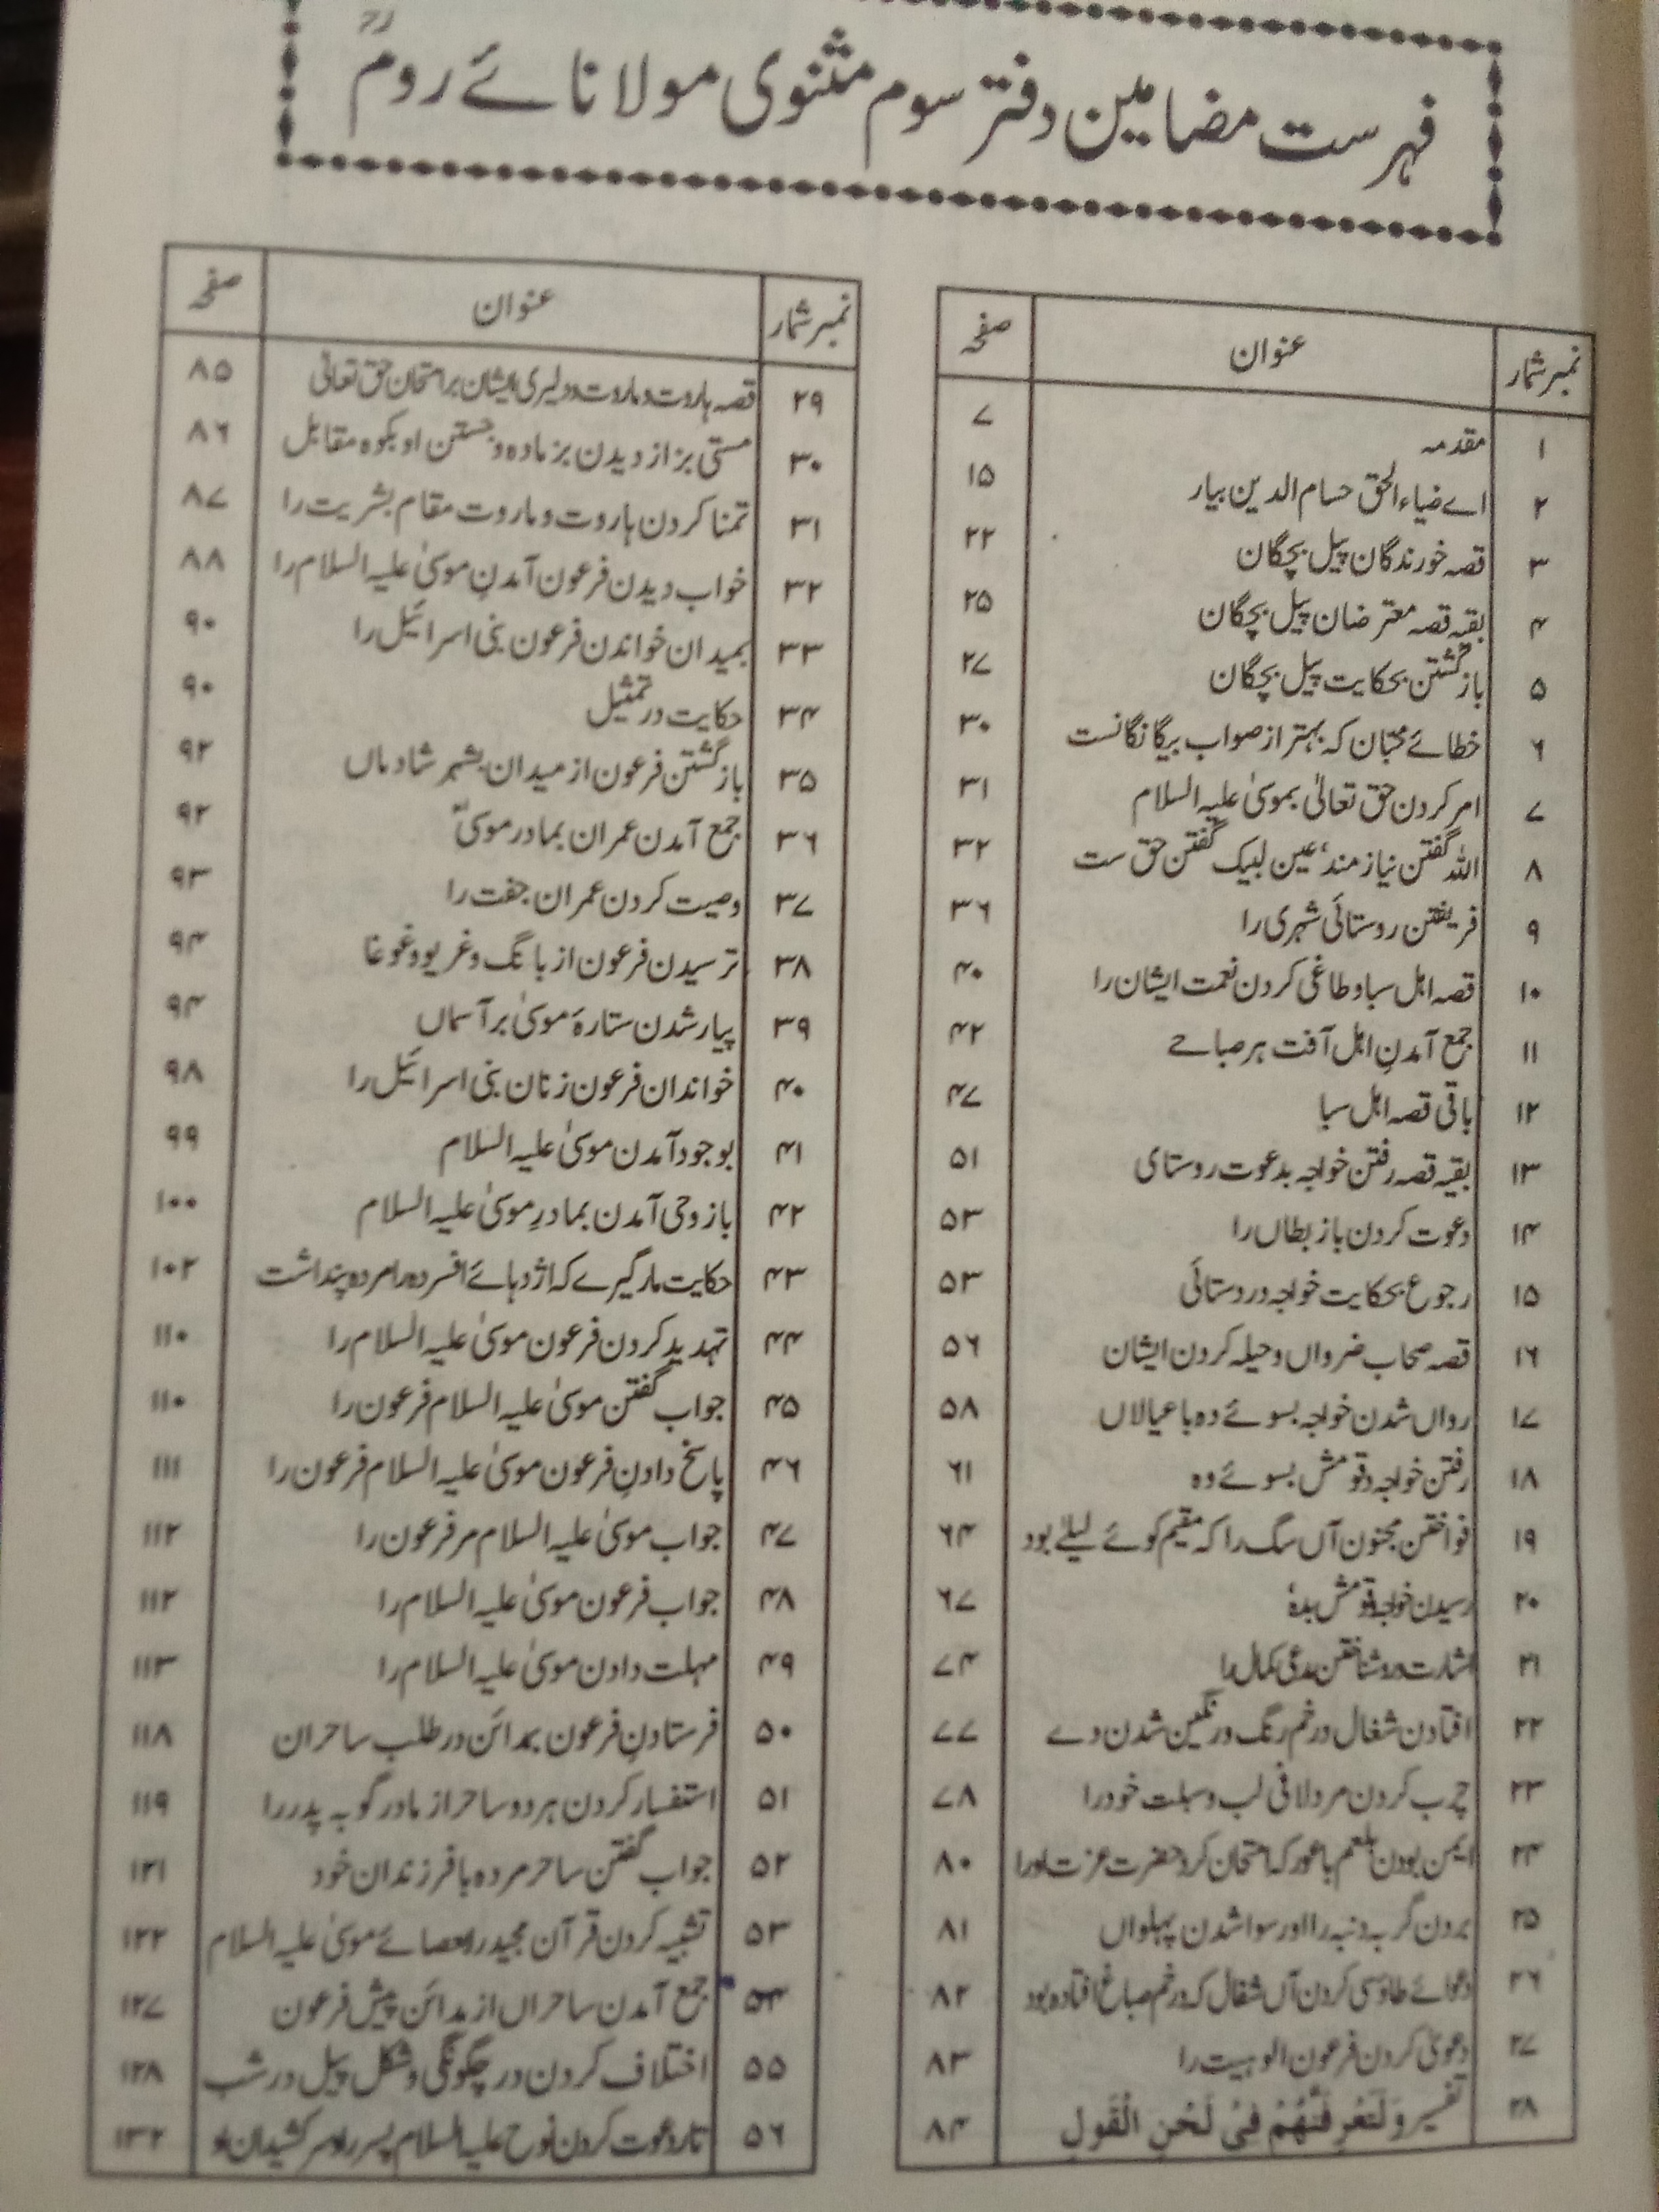 فہرست مضامین دفتر سوم مثنوی مولانائے رومؒ
نمبر شمار عنوان صفحہ
۱ مقدمہ ۷
۲ اے ضیاء الحق حسام الدین بیار ۱۵
۳ قصہ خورندگان پیل بچگان ۲۲
۴ بقیہ قصہ معترضان پیل بچگان ۲۵
۵ بازگشتن بحکایت پیل بچگان ۲۷
۶ خطائے محبان کہ بہتر از صواب بیگانگانست ۳۰
۷ امر کردن حق تعالیٰ بموسیٰ علیہ السلام ۳۱
۸ اللہ گفتن نیاز مند، عین لبیک گفتن حق ست ۳۲
۹ فریفتن روستائی شہری را ۳۶
۱۰ قصہ اہل سبا و طاغی کردن نعمت ایشان را ۴۰
۱۱ جمع آمدنِ اہل آفت ہر صباحے ۴۲
۱۲ باقی قصہ اہل سبا ۴۷
۱۳ بقیہ قصہ رفتن خواجہ بدعوت روستای ۵۱
۱۴ دعوت کردن باز بطاں را ۵۳
۱۵ رجوع بحکایت خواجہ و روستائی ۵۳
۱۶ قصہ صحاب ضرواں و حیلہ کردن ایشان ۵۶
۱۷ رواں شدن خواجہ بسوئے دہ با عیالاں ۵۸
۱۸ رفتن خواجہ و قومش بسوئے دہ ۶۱
۱۹ نواختن مجنون آں سگ را کہ مقیم کوئے لیلےٰ بود ۶۴
۲۰ رسیدن خواجہ و قومش بدہ ۶۷
۲۱ اشارت در شناختن مدعی کمال را ۷۴
۲۲ افتادن شغال در خم رنگ و رنگین شدن وے ۷۷
۲۳ چرب کردن مرد لافی لب و سبلت خود را ۷۸
۲۴ ایمن بودن بلعم باعور کہ امتحان کرد حضرت عزت او را ۸۰
۲۵ بردن گربہ دنبہ را اور سوا شدن پہلواں ۸۱
۲۶ دعوائے طاؤسی کردن آں شغال کہ در خم صباغ افتادہ بود ۸۲
۲۷ دعویٰ کردن فرعون الوہیت را ۸۳
۲۸ تفسیر وَلَتَعْرِفَنَّهُمْ فِيْ لَحْنِ الْقَوْلِ ۸۴
نمبر شمار عنوان صفحہ
۲۹ قصہ ہاروت و ماروت و دلیری ایشان بر امتحان حق تعالیٰ ۸۵
۳۰ مستی بز از دیدن بز مادہ و جستن او بکوہ مقابل ۸۶
۳۱ تمنا کردن ہاروت و ماروت مقام بشریت را ۸۷
۳۲ خواب دیدن فرعون آمدنِ موسیٰ علیہ السلام را ۸۸
۳۳ بمیدان خواندن فرعون بنی اسرائیل را ۹۰
۳۴ حکایت در تمثیل ۹۰
۳۵ بازگشتن فرعون از میدان بشہر شادماں ۹۲
۳۶ جمع آمدن عمران بمادر موسیٰؑ ۹۲
۳۷ وصیت کردن عمران جفت را ۹۳
۳۸ ترسیدن فرعون از بانگ و غریو و غوغا ۹۴
۳۹ پیار شدن ستارۂ موسیٰ بر آسماں ۹۴
۴۰ خواندان فرعون زنان بنی اسرائیل را ۹۸
۴۱ بوجود آمدن موسیٰ علیہ السلام ۹۹
۴۲ باز وحی آمدن بمادرِ موسیٰ علیہ السلام ۱۰۰
۴۳ حکایت مار گیرے کہ اژدہائے افسردہ را مردہ پنداشت ۱۰۲
۴۴ تہدید کردن فرعون موسیٰ علیہ السلام را ۱۱۰
۴۵ جواب گفتن موسیٰ علیہ السلام فرعون را ۱۱۰
۴۶ پاسخ دادنِ فرعون موسیٰ علیہ السلام فرعون را ۱۱۱
۴۷ جواب موسیٰ علیہ السلام مر فرعون را ۱۱۲
۴۸ جواب فرعون موسیٰ علیہ السلام را ۱۱۲
۴۹ مہلت دادن موسیٰ علیہ السلام را ۱۱۳
۵۰ فرستادنِ فرعون بمدائن در طلب ساحران ۱۱۸
۵۱ استفسار کردن ہر دو ساحر از مادر گوبہ پدر را ۱۱۹
۵۲ جواب گفتن ساحر مردہ با فرزندان خود ۱۲۱
۵۳ تشبیہ کردن قرآن مجید را بعصائے موسیٰ علیہ السلام ۱۲۲
۵۴ جمع آمدن ساحراں از مدائن پیش فرعون ۱۲۷
۵۵ اختلاف کردن در چگونگی و شکل پیل در شب ۱۲۸
۵۶ تار دعوت کردن نوح علیہ السلام پسر را و سر کشیدان او ۱۳۲